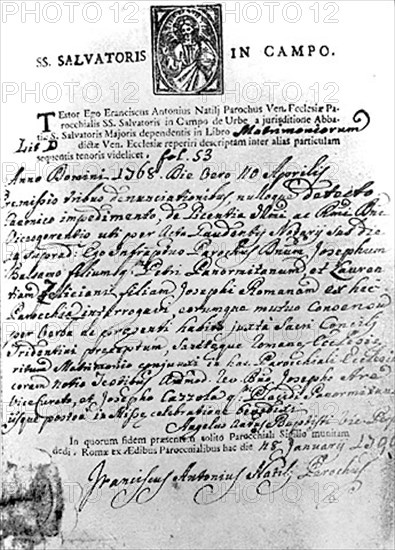 SS. SALVATORIS IN CAMPO.
TEstor Ego Franciscus Antonius Natilj Parochus Ven. Ecclesiæ Pa-
rochialis SS. Salvatoris in Campo de Urbe, a jurisditione Abba-
tiæ S. Salvatoris Majoris dependentis in Libro Matrimoniorum
Lib D dictæ Ven. Ecclesiæ reperiri descriptam inter alias particulam
sequentis tenoris videlicet fol. 53
Anno Domini 1768 Die vero Aprilis
Præmissis tribus denunciationibus, nulloque detecto
canonico impedimento, de Licentia
Vicegerentis uti per Acta Notarij sub die
Ego Infraptus Parochus Josephum
Balsamo filium Petri Panormitanum, et Lauren
tiam Feliciani filiam Josephi Romanam ex hac
Parochia interrogavi, eorumque mutuo Consensu
per verba de præsenti habito juxta Sacri Concilij
Tridentini præceptum, Romanæ Ecclesiæ
ritum Matrimonio conjunxi in hac Parochiali Ecclesia
coram notis Testibus Admod. Josepho
Vicecurato, et Josepho Cazzola q. Placidi Panormitano
iisque postea in Missæ celebratione Benedixi
Angelus Baptisti
In quorum fidem præsentem solito Parochiali Sigillo munitam
dedi. Romæ ex Ædibus Parochialibus hac die Januarij 1790
Franciscus Antonius Natilj Parochus
PHOTO12